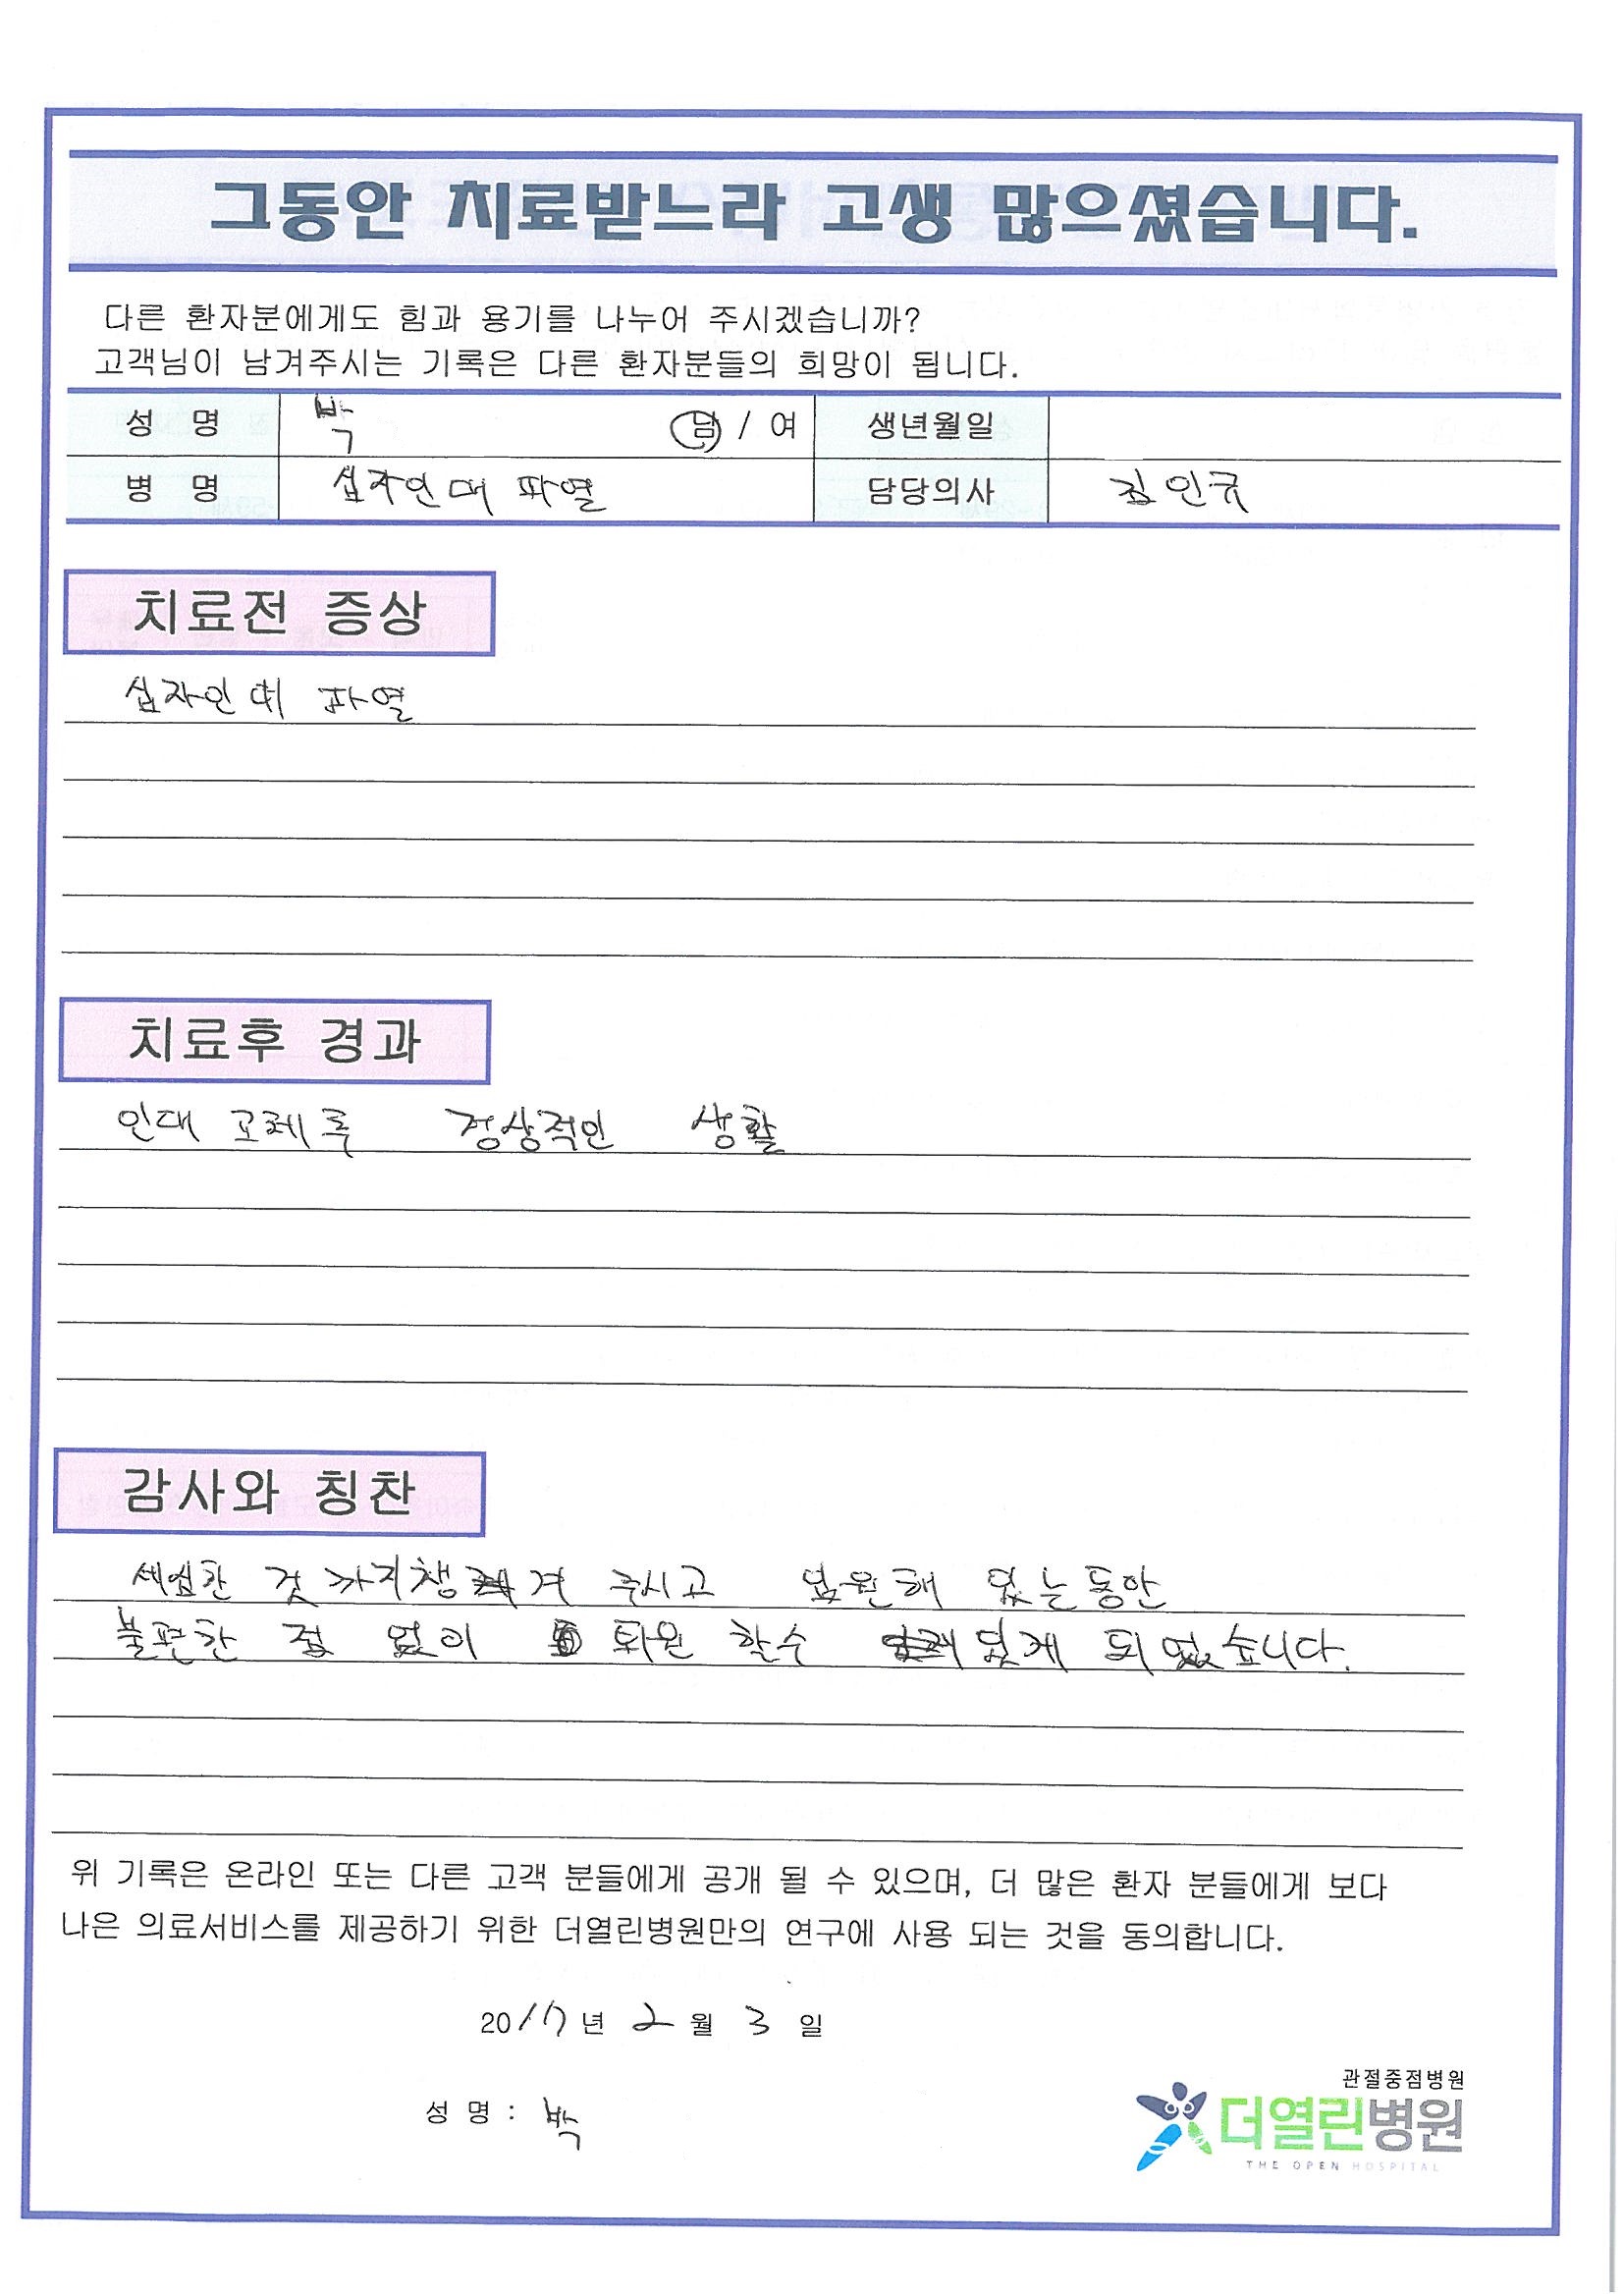 그동안 치료받느라 고생 많으셨습니다.
다른 환자분에게도 힘과 용기를 나누어 주시겠습니까?
고객님이 남겨주시는 기록은 다른 환자분들의 희망이 됩니다.
성 명 박 남 / 여 생년월일
병 명 십자인대 파열 담당의사 김인규
치료전 증상
십자인대 파열
치료후 경과
인대 교체 후 정상적인 생활
감사와 칭찬
세심한 것 까지 챙겨 주시고 있는동안
불편한 점 없이 퇴원 할수 있게 되었습니다.
위 기록은 온라인 또는 다른 고객 분들에게 공개 될 수 있으며, 더 많은 환자 분들에게 보다
나은 의료서비스를 제공하기 위한 더열린병원만의 연구에 사용 되는 것을 동의합니다.
2017년 2월 3일
성 명 : 박
관절중점병원
더열린병원
THE OPEN HOSPITAL